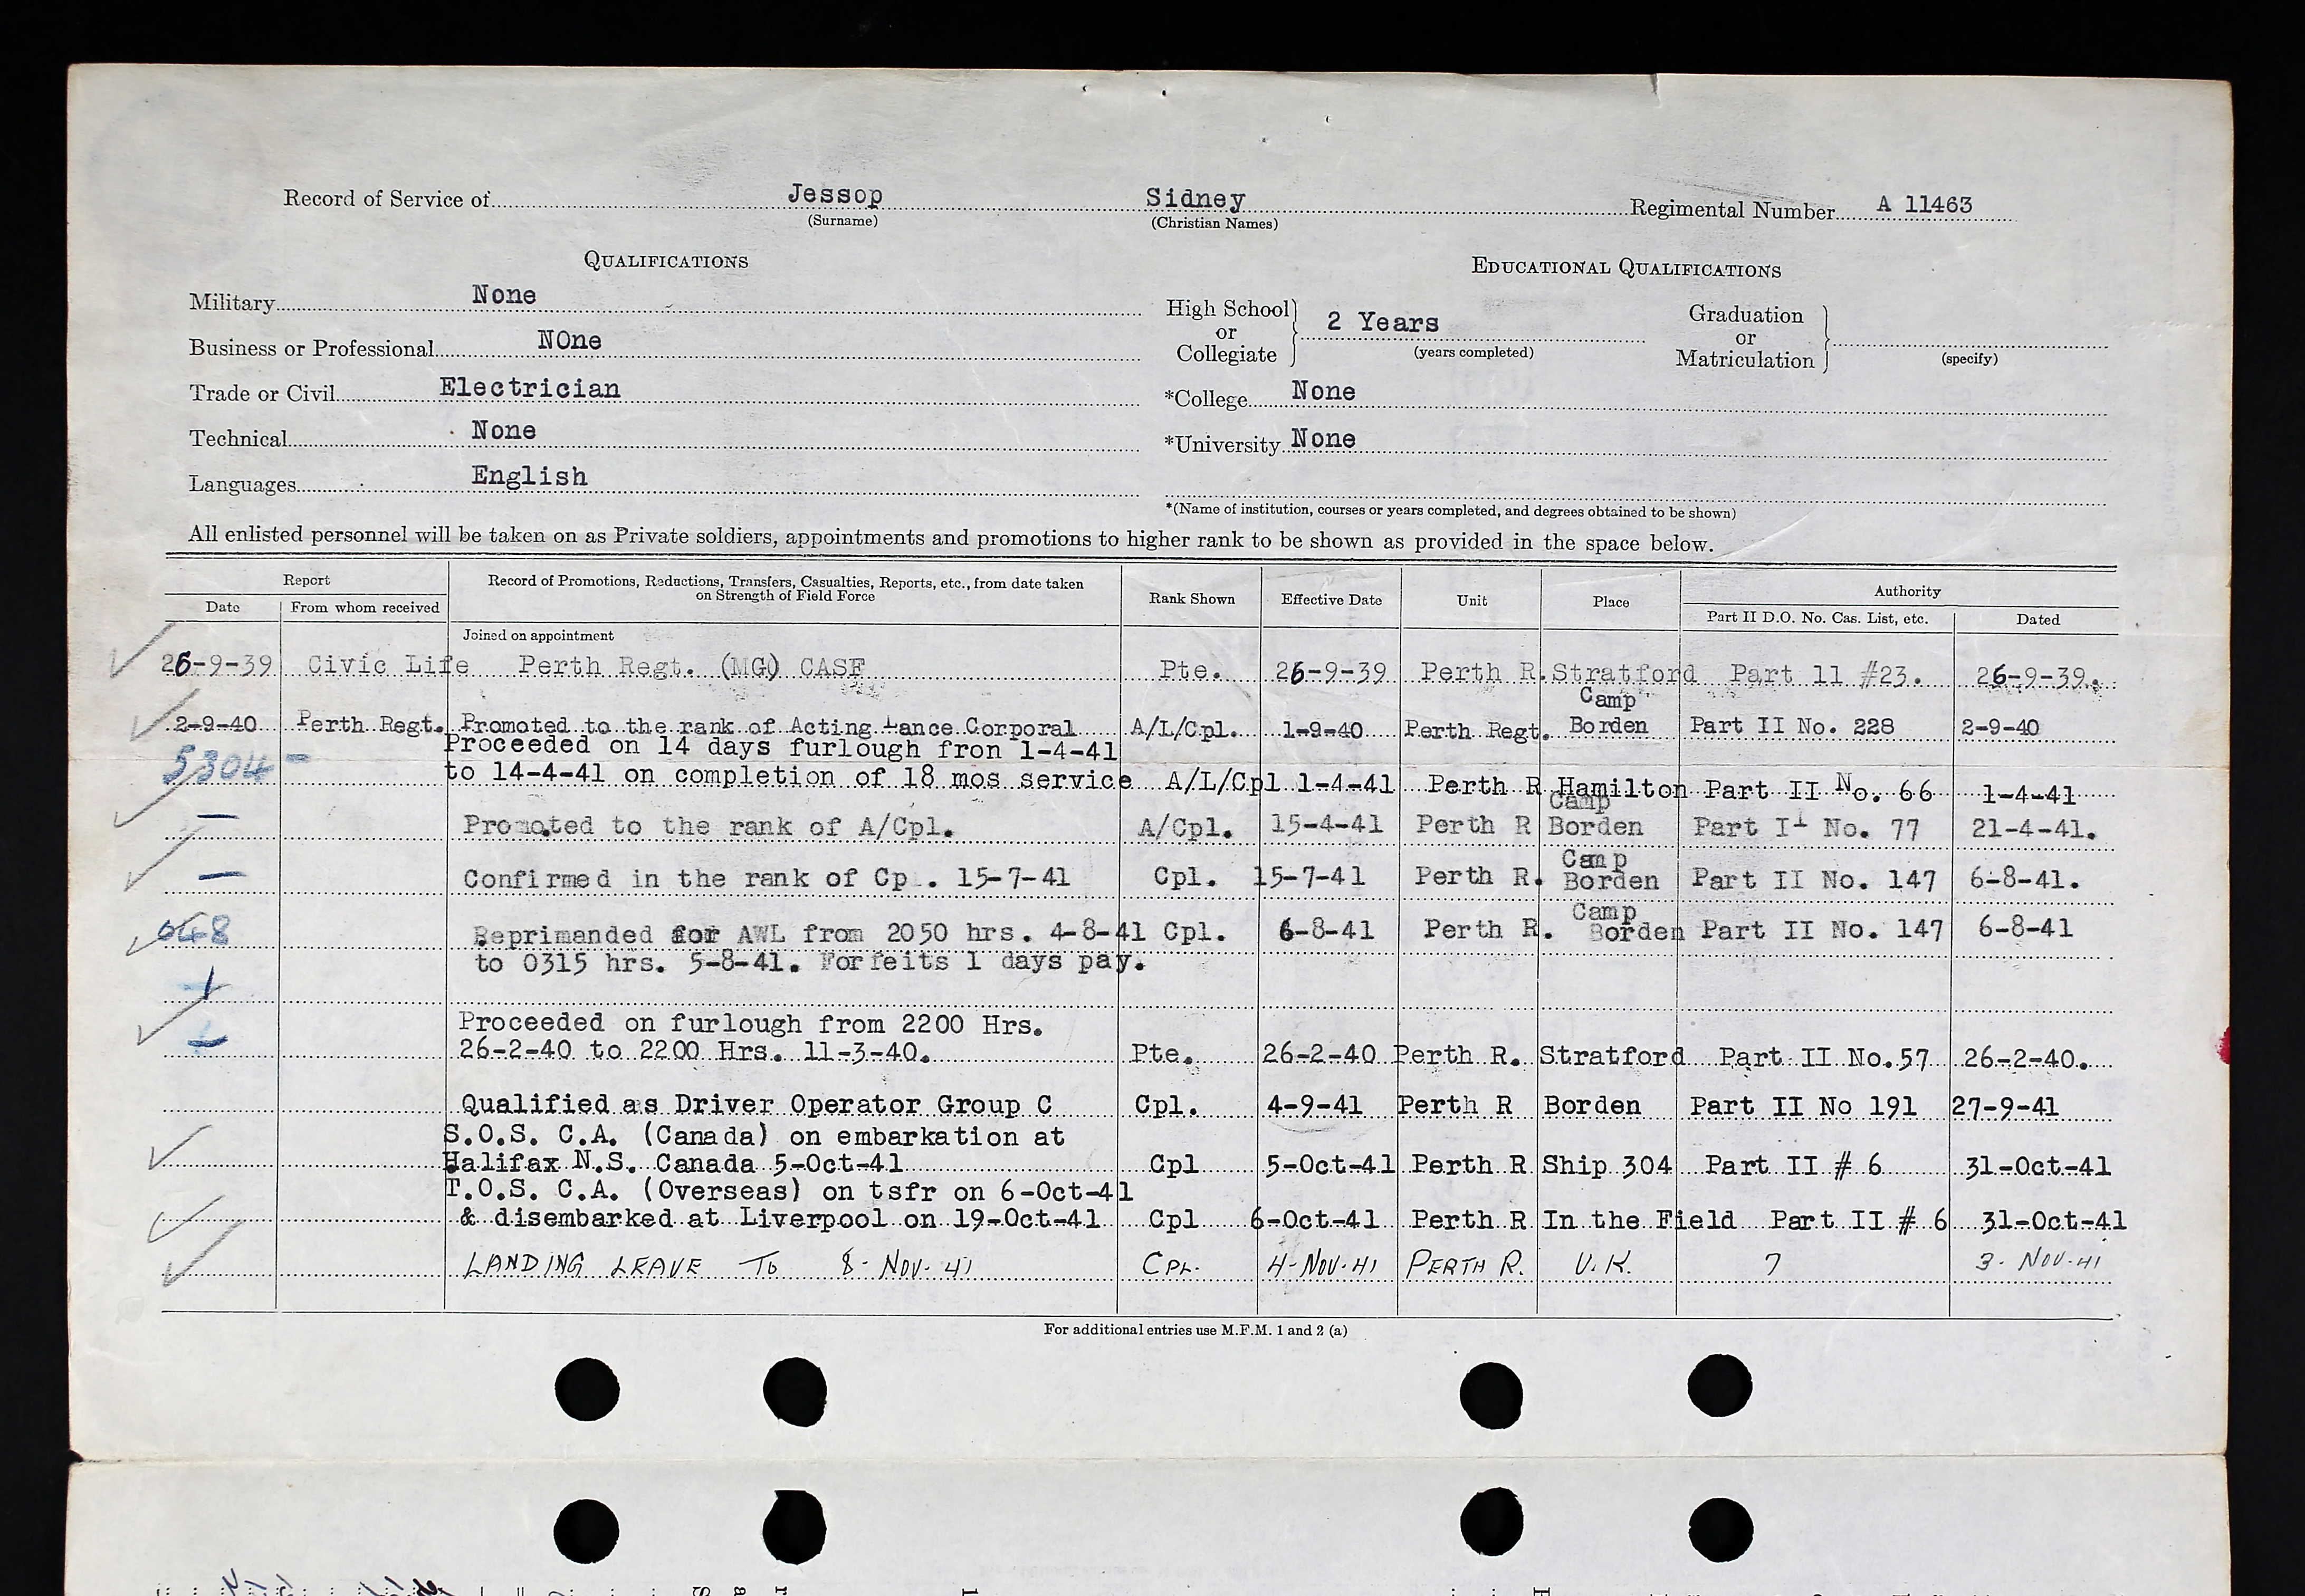 Record of Service of Jessop Sidney Regimental Number A 11463
(Surname) (Christian Names)
QUALIFICATIONS
EDUCATIONAL QUALIFICATIONS
Military None
Business or Professional NOne
Trade or Civil Electrician
Technical None
Languages English
High School or Collegiate 2 Years
(years completed)
Graduation or Matriculation
(specify)
*College None
*University None
*(Name of institution, courses or years completed, and degrees obtained to be shown)
All enlisted personnel will be taken on as Private soldiers, appointments and promotions to higher rank to be shown as provided in the space below.
Report
Date From whom received
Record of Promotions, Reductions, Transfers, Casualties, Reports, etc., from date taken
on Strength of Field Force
Rank Shown Effective Date Unit Place
Authority
Part II D.O. No. Cas. List, etc. Dated
Joined on appointment
26-9-39 Civic Life Perth Regt. (MG) CASF Pte. 26-9-39 Perth R. Stratford Part 11 #23. 26-9-39.
Camp
2-9-40 Perth Regt. Promoted to the rank of Acting Lance Corporal A/L/Cpl. 1-9-40 Perth Regt. Borden Part II No. 228 2-9-40
Proceeded on 14 days furlough fron 1-4-41
5304 - to 14-4-41 on completion of 18 mos service A/L/Cpl 1-4-41 Perth R Hamilton Part II No. 66 1-4-41
Camp
Promoted to the rank of A/Cpl. A/Cpl. 15-4-41 Perth R Borden Part II No. 77 21-4-41.
Camp
Confirmed in the rank of Cp . 15-7-41 Cpl. 15-7-41 Perth R. Borden Part II No. 147 6-8-41.
Camp
048 Reprimanded for AWL from 2050 hrs. 4-8-41 Cpl. 6-8-41 Perth R. Borden Part II No. 147 6-8-41
to 0315 hrs. 5-8-41. Forfeits 1 days pay.
Proceeded on furlough from 2200 Hrs.
26-2-40 to 2200 Hrs. 11-3-40. Pte. 26-2-40 Perth R. Stratford Part II No.57 26-2-40.
Qualified as Driver Operator Group C Cpl. 4-9-41 Perth R Borden Part II No 191 27-9-41
S.O.S. C.A. (Canada) on embarkation at
Halifax N.S. Canada 5-Oct-41 Cpl 5-Oct-41 Perth R Ship 304 Part II # 6 31-Oct-41
T.O.S. C.A. (Overseas) on tsfr on 6-Oct-41
& disembarked at Liverpool on 19-Oct-41 Cpl 6-Oct-41 Perth R In the Field Part II # 6 31-Oct-41
LANDING LEAVE TO 8-NOV-41 CPL. 4-NOV-41 PERTH R. U.K. 7 3-NOV-41
For additional entries use M.F.M. 1 and 2 (a)